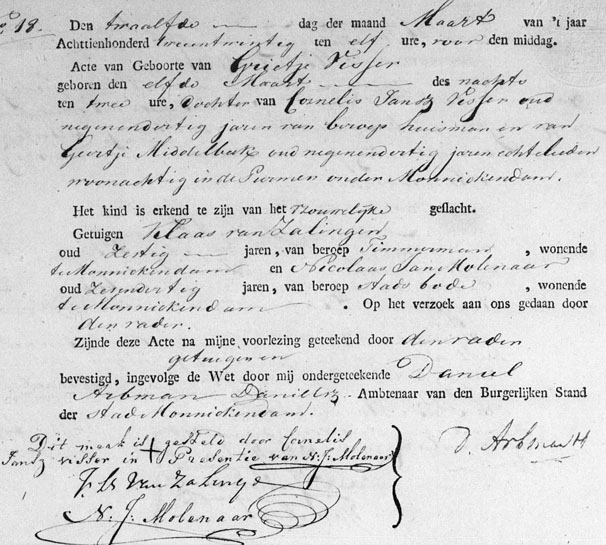 No 18. Den twaalfde dag der maand Maart van 't jaar
Achttienhonderd tweentwintig ten elf ure, voor den middag.
Acte van Geboorte van Grietje Visser
geboren den elfde Maart des nachts
ten twee ure, dochter van Cornelis Jansz Visser oud
negenendertig jaren van beroep huisman en van
Geertje Middelbeek oud negenendertig jaren echtelieden
woonachtig in de Purmer onder Monnickendam.
Het kind is erkend te zijn van het vrouwelijke geslacht.
Getuigen Klaas van Zalingen
oud Zestig jaren, van beroep Timmerman, wonende
te Monnickendam en Nicolaas Jan Molenaar
oud Zesendertig jaren, van beroep Stads bode, wonende
te Monnickendam. Op het verzoek aan ons gedaan door
den vader.
Zijnde deze Acte na mijne voorlezing geteekend door den vader
getuigen en
bevestigd, ingevolge de Wet door mij ondergeteekende Daniel
Arbman Danielsz. Ambtenaar van den Burgerlijken Stand
der Stad Monnickendam.
Dit merk is + gesteld door Cornelis
Jansz visser in Presentie van N: J: Molenaar
D. Arbman
van Zalinge
N. J. Molenaar